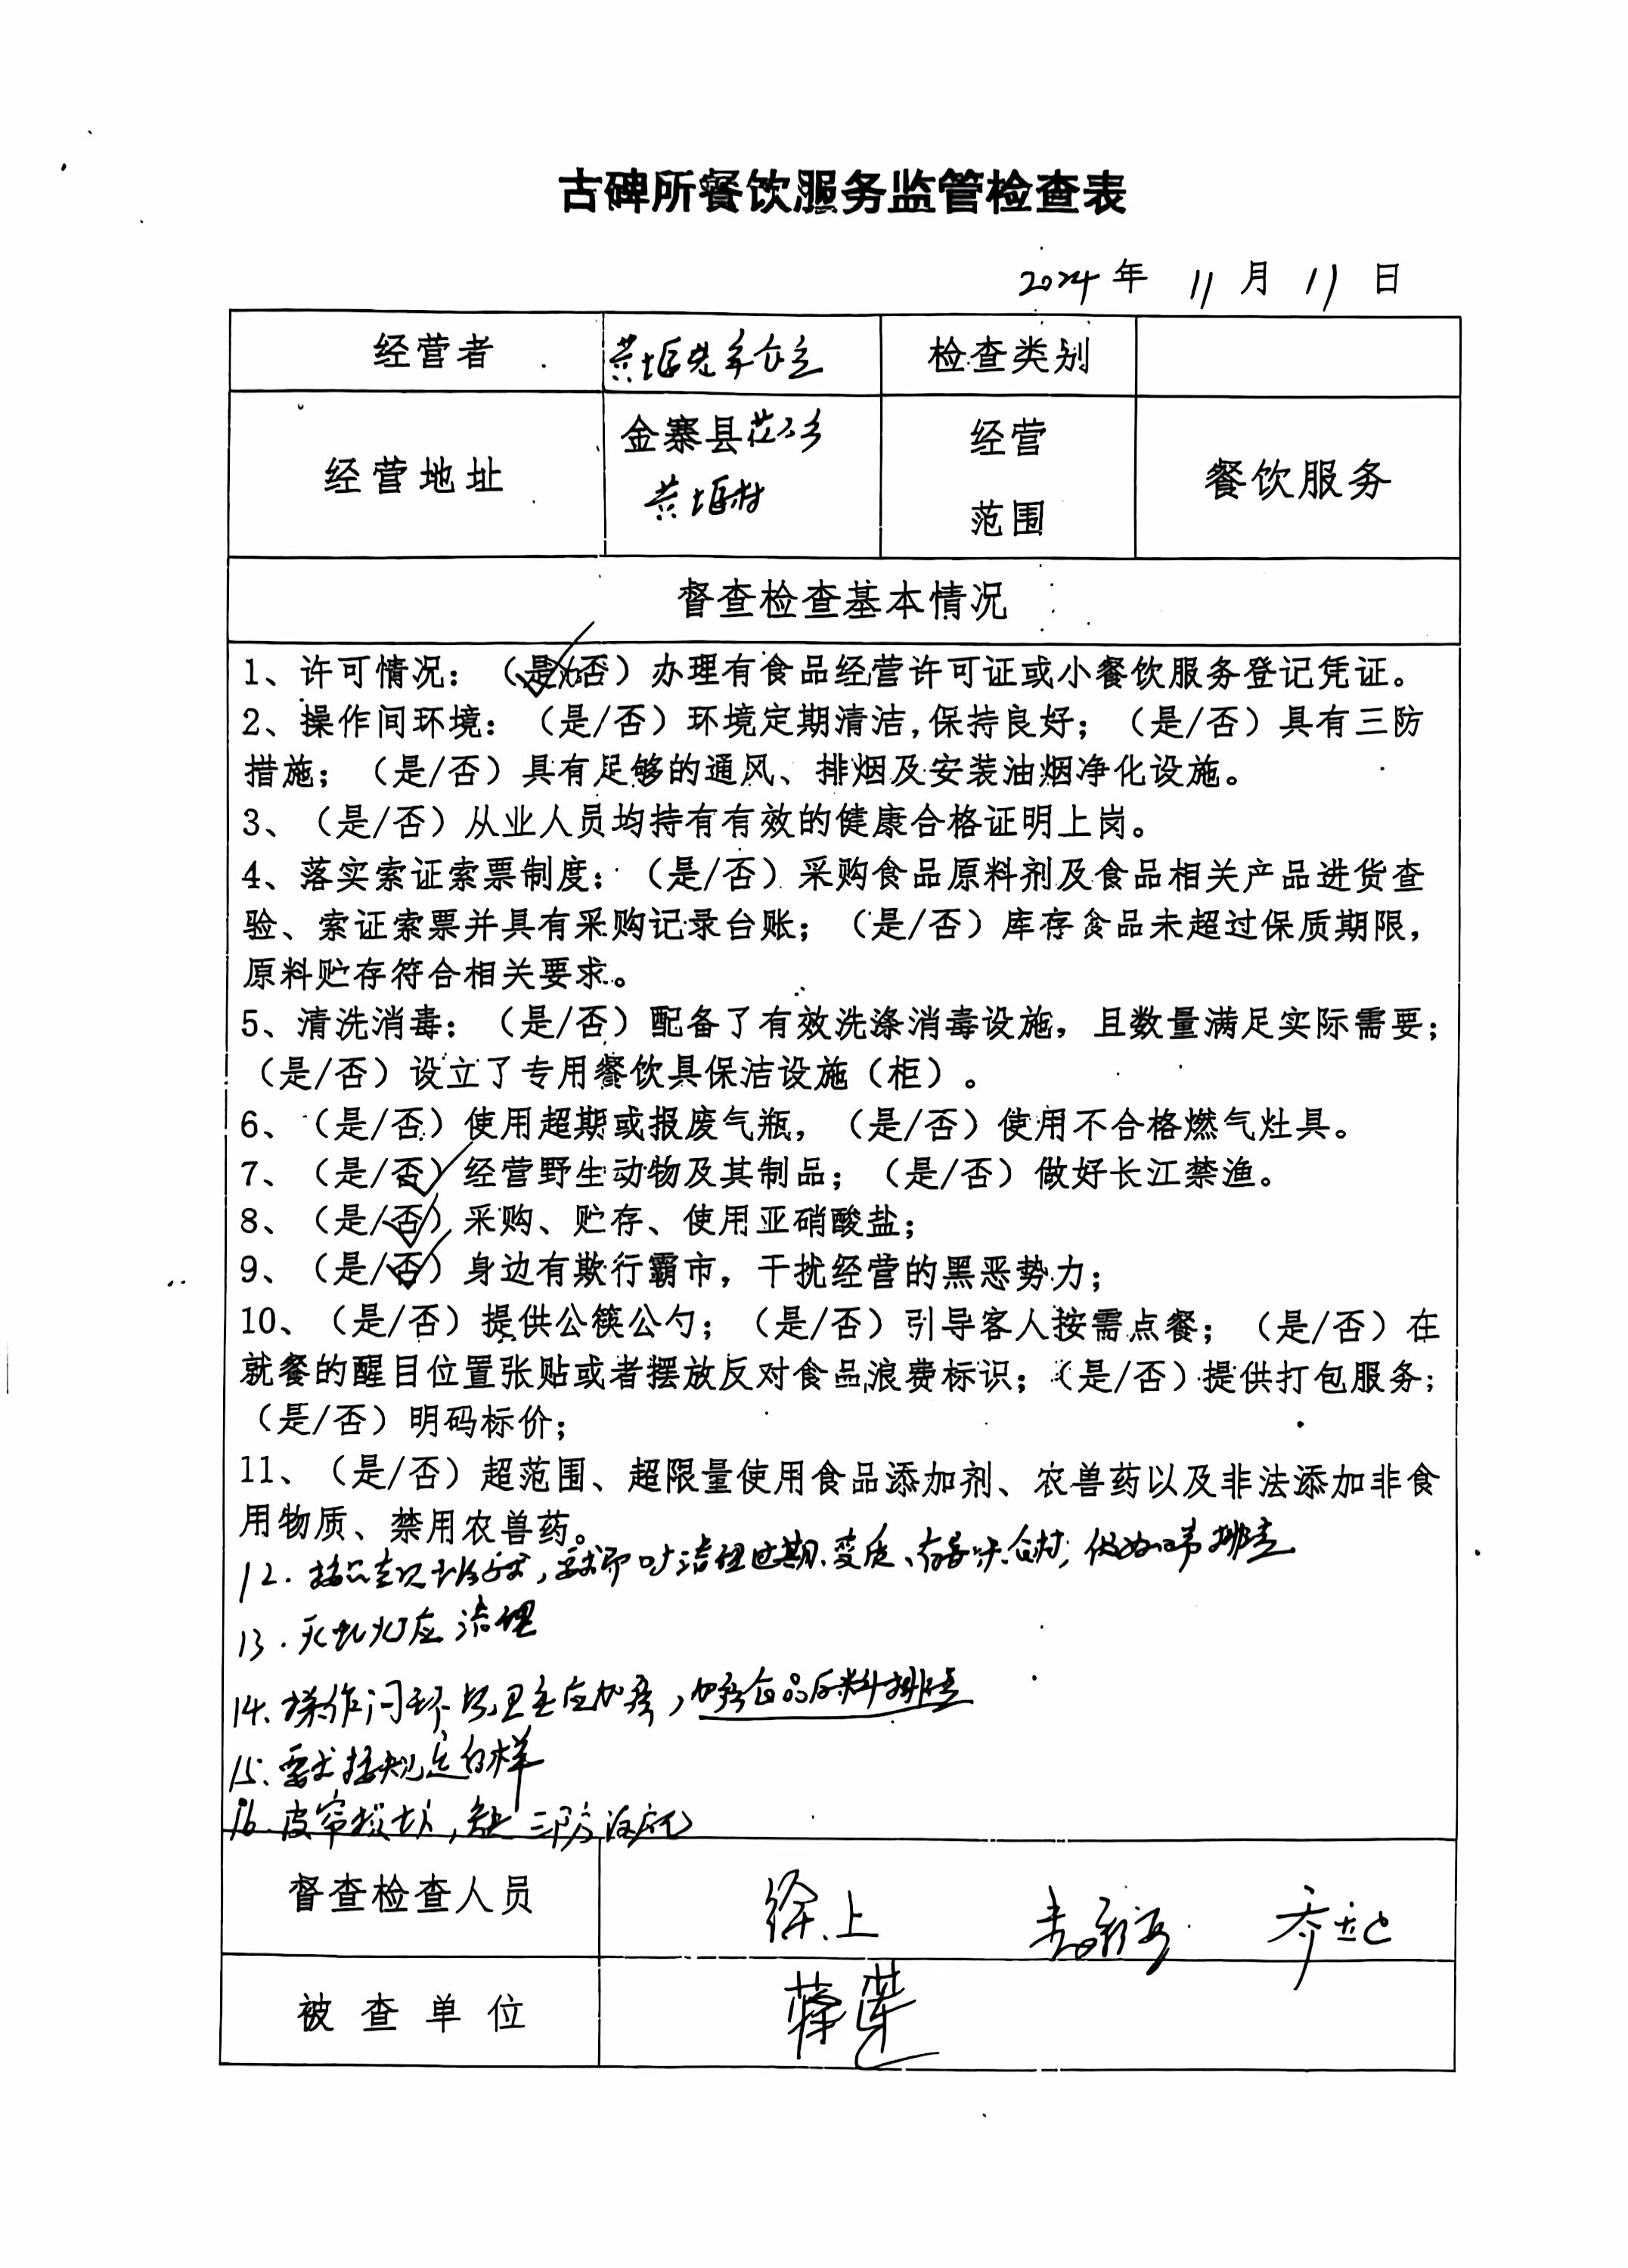 古碑所餐饮服务监管检查表
2024年 11月 11日
经营者
黄堰
检查类别
经营地址
金寨县
黄堰村
经营
范围
餐饮服务
督查检查基本情况
1、许可情况：（是/否）办理有食品经营许可证或小餐饮服务登记凭证。
2、操作间环境：（是/否）环境定期清洁,保持良好；（是/否）具有三防
措施；（是/否）具有足够的通风、排烟及安装油烟净化设施。
3、（是/否）从业人员均持有有效的健康合格证明上岗。
4、落实索证索票制度：（是/否）采购食品原料剂及食品相关产品进货查
验、索证索票并具有采购记录台账；（是/否）库存食品未超过保质期限，
原料贮存符合相关要求。
5、清洗消毒：（是/否）配备了有效洗涤消毒设施，且数量满足实际需要；
（是/否）设立了专用餐饮具保洁设施（柜）。
6、（是/否）使用超期或报废气瓶，（是/否）使用不合格燃气灶具。
7、（是/否）经营野生动物及其制品；（是/否）做好长江禁渔。
8、（是/否）采购、贮存、使用亚硝酸盐；
9、（是/否）身边有欺行霸市，干扰经营的黑恶势力；
10、（是/否）提供公筷公勺；（是/否）引导客人按需点餐；（是/否）在
就餐的醒目位置张贴或者摆放反对食品浪费标识；（是/否）提供打包服务；
（是/否）明码标价；
11、（是/否）超范围、超限量使用食品添加剂、农兽药以及非法添加非食
用物质、禁用农兽药。
12. 要求即时清理过期、变质、
13. 灭蚊灯应清理
14. 操作间环境卫生应加强，加强食品原料排查
15. 要求按规定留样
16. 皮帘损坏，
督查检查人员
徐上
被查单位